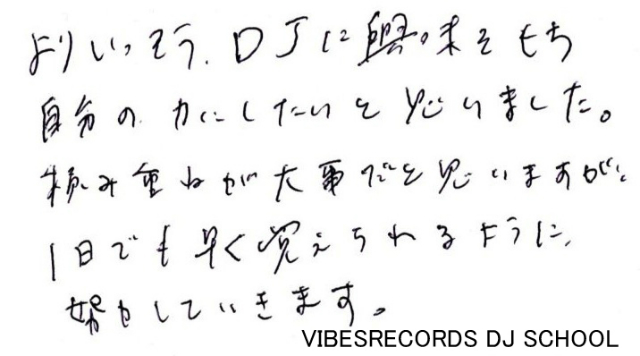 よりいっそう、DJに興味をもち
自分の力にしたいと思いました。
積み重ねが大事だと思いますが、
1日でも早く覚えられるように、
努力していきます。
VIBESRECORDS DJ SCHOOL